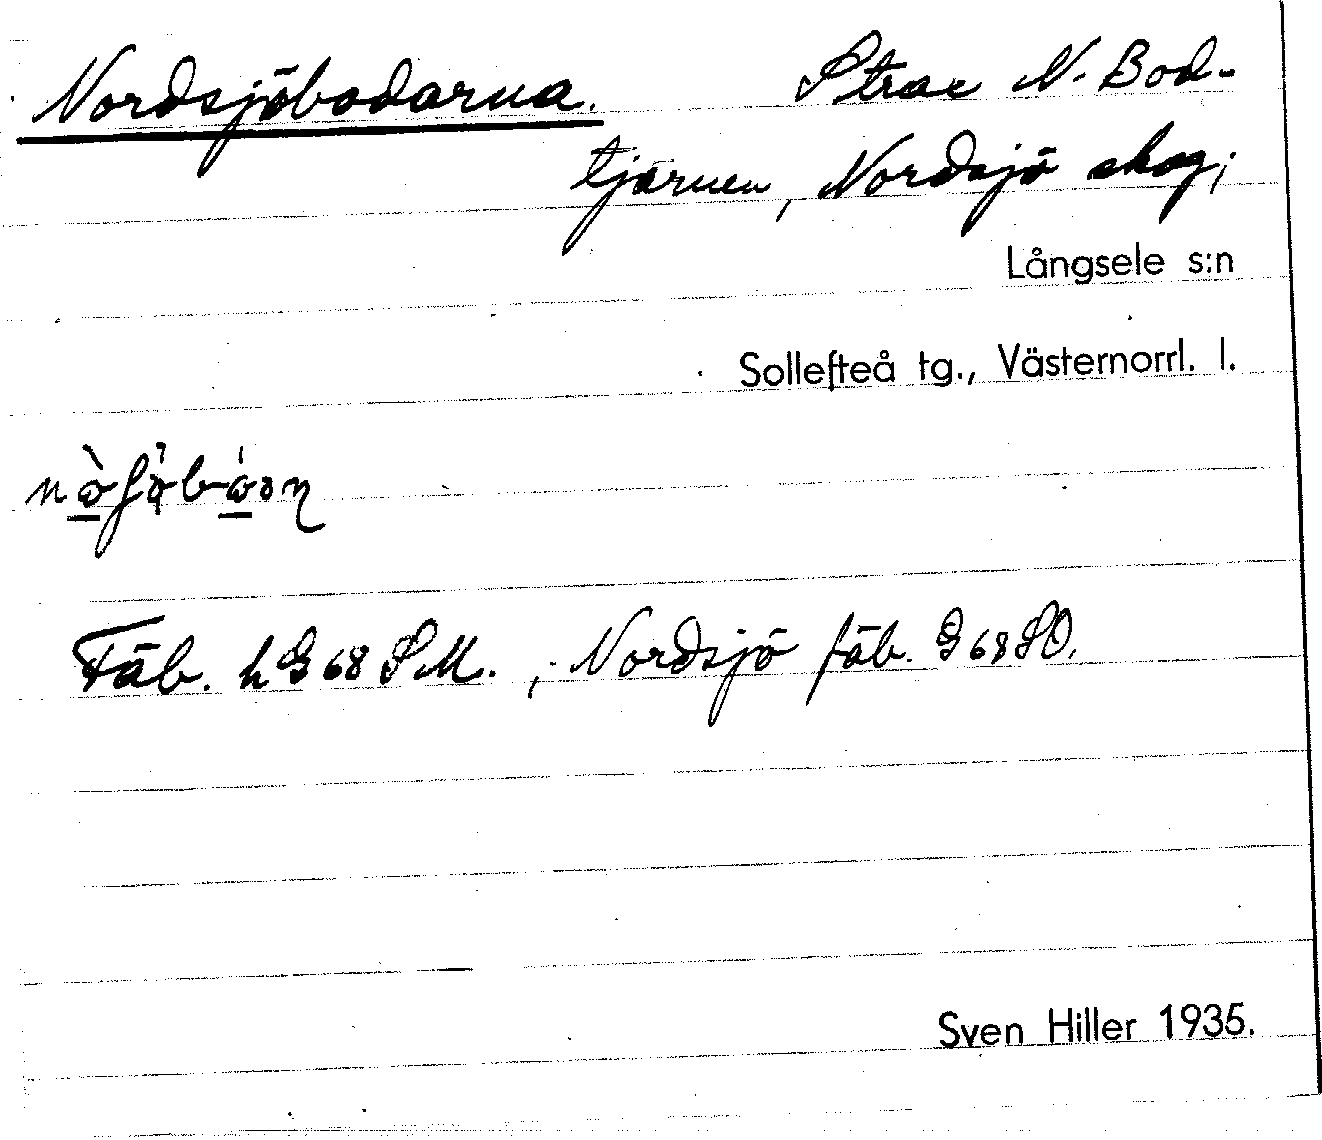 Nordsjöbodarna. Strax N. Bod-
tjärnen, Nordsjö skog;
Långsele s:n
Sollefteå tg., Västernorrl. l.
Fäb. h G 68 SM., Nordsjö fäb. G 68 SO.
Sven Hiller 1935.